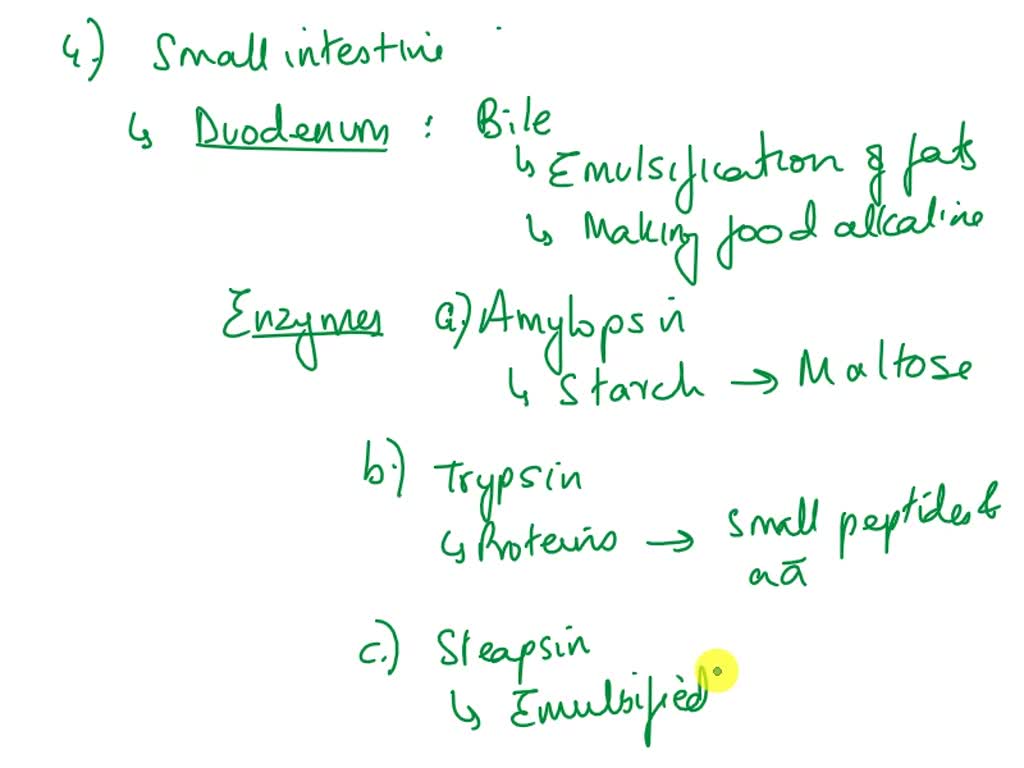 4.) Small intestine
↳ Duodenum : Bile
↳ Emulsification of fats
↳ Making food alkaline
Enzymes a.) Amylopsin
↳ Starch → Maltose
b.) Trypsin
↳ Proteins → Small peptides &
aā
c.) Steapsin
↳ Emulsified